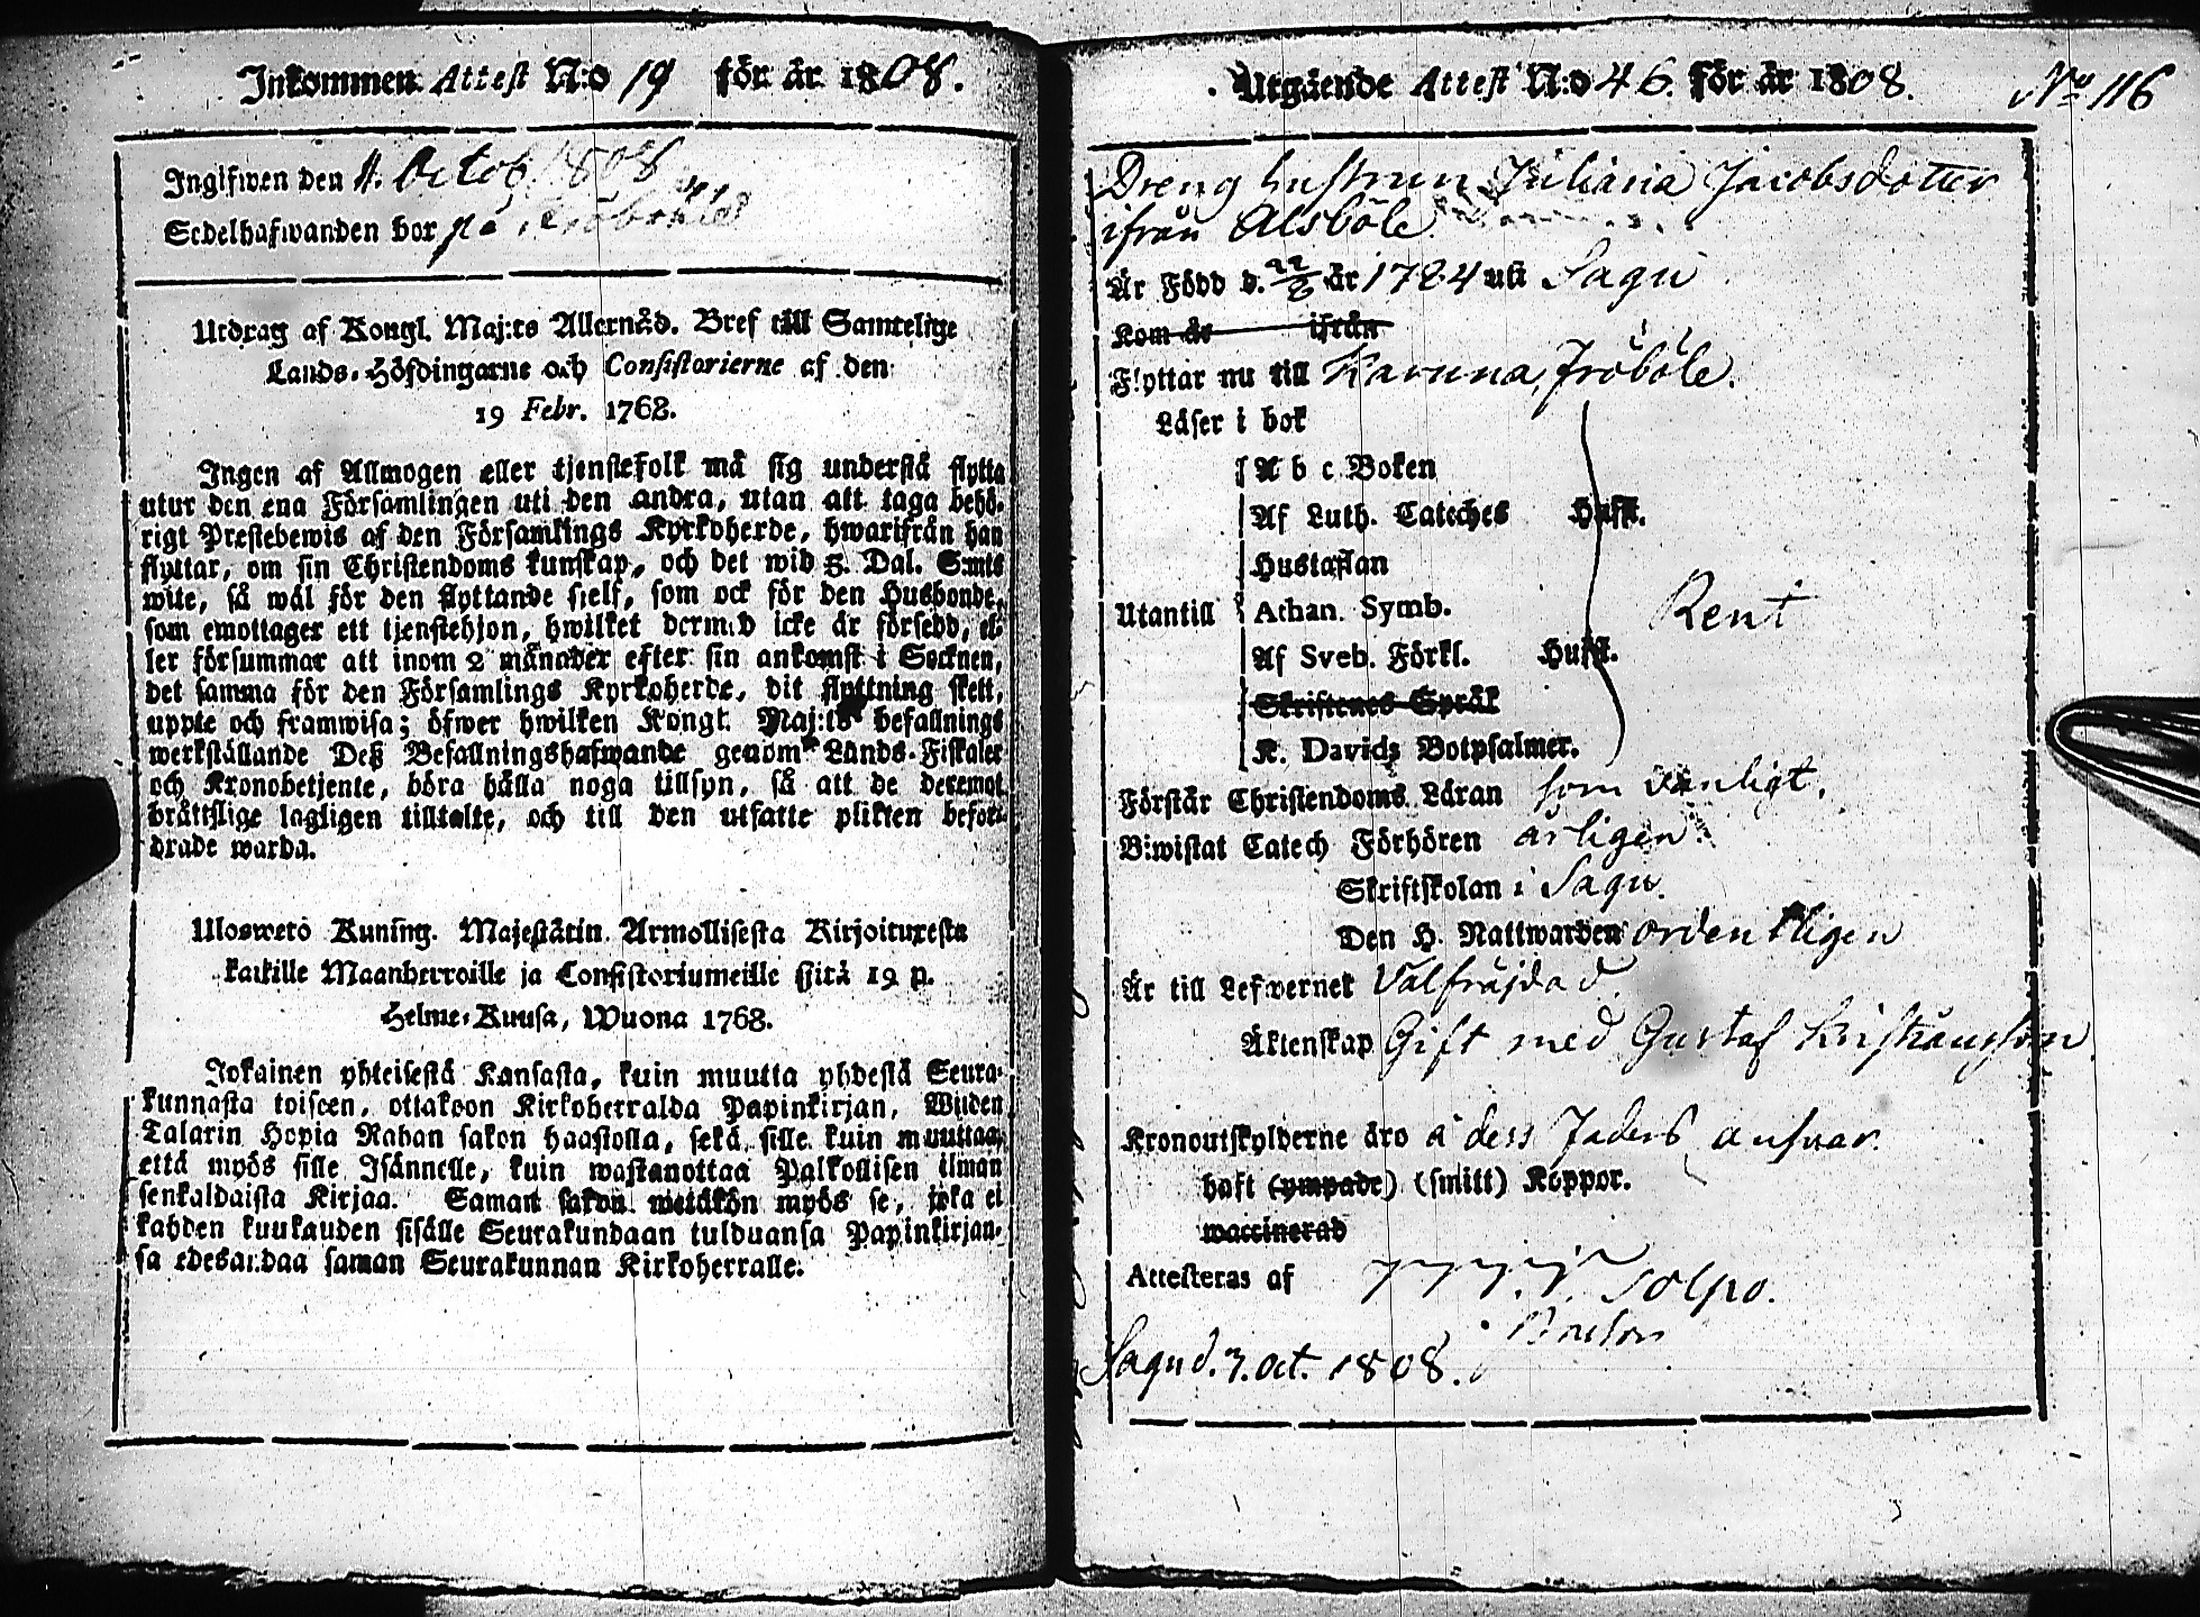 Inkommen Attest N:o 19 för år 1808.
Ingifwen den 11. Octob. 1808
Sedelhafwanden bor på
Utdrag af Kongl. Maj:ts Allernåd. Bref till Samtelige
Lands-Höfdingarne och Consistorierne af den
19 Febr. 1768.
Ingen af Allmogen eller tjenstefolk må sig understå flytta
utur den ena Församlingen uti den andra, utan att taga behö-
rigt Prestebewis af den Församlings Kyrkoherde, hwarifrån han
flyttar, om sin Christendoms kunskap, och det wid 5. Dal. S:mts
wite, så wäl för den flyttande sielf, som ock för den Husbonde,
som emottager ett tjenstehjon, hwilket dermed icke är försedd, el-
ler försummar att inom 2 månader efter sin ankomst i Socknen,
det samma för den Församlings Kyrkoherde, dit flyttning skett,
uppte och framwisa; öfwer hwilken Kongl. Maj:ts befallnings
werkställande Deß Befallningshafwande genom Lands-Fiskaler
och Kronobetjente, böra hålla noga tillsyn, så att de deremot
bråttslige lagligen tilltalte, och till den utsatte plikten befor-
drade warda.
Uloswetö Kuning. Majestätin Armollisesta Kirjoituxesta
kaikille Maanherroille ja Consistoriumeille siitä 19 p.
Helme-Kuusa, Wuona 1768.
Jokainen yhteisestä Kansasta, kuin muutta yhdestä Seura-
kunnasta toiseen, ottakoon Kirkoherralda Papinkirjan, Wiiden
Talarin Hopia Rahan sakon haastolla, sekä sille kuin muuttaa,
että myös sille Isännelle, kuin wastanottaa Palkollisen ilman
senkaldaista Kirjaa. Saman sakon wetäkön myös se, joka ei
kahden kuukauden sisälle Seurakundaan tulduansa Papinkirjan-
sa edesandaa saman Seurakunnan Kirkoherralle.
Utgående Attest N:o 46. för år 1808. No 116
Dreng hustrun Juliana Jacobsdotter
ifrån Alsböle
Är Född d. 22/6 år 1784 uti Sagu
Kom år ifrån
Flyttar nu till Karuna, Fröböle.
Läser i bok
A b c Boken
Af Luth. Cateches Hufst.
Hustaflan
Utantill Athan. Symb. Rent
Af Sveb. Förkl. Hufst.
Skriftenes Språk
K. Davids Botpsalmer.
Förstår Christendoms Läran som vanligt.
Biwistat Catech Förhören årligen
Skriftskolan i Sagu.
Den H. Nattwarden ordentligen
Är till Lefwernet Välfräjdad
Äktenskap Gift med Gustaf Kristiansson
Kronoutskylderne äro å dess Faders answar.
haft (ympade) (smitt) Koppor.
waccinerad
Attesteras af Solpo.
Sagu d. 7. Oct. 1808.